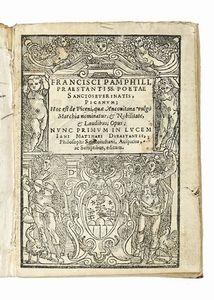 FRANCISCI PAMPHILI,
PRAESTANTISS. POETAE
SANCTOSEVERINATIS,
PICENVM;
Hoc est de Piceni, quae Anconitana vulgo
Marchia nominatur, & Nobilitate,
& Laudibus, Opus;
NVNC PRIMVM IN LVCEM
IANI MATTHAEI DVRASTANTIS,
Philosophi Sanctoiustani, Auspicijs,
ac Sumptibus, editum.